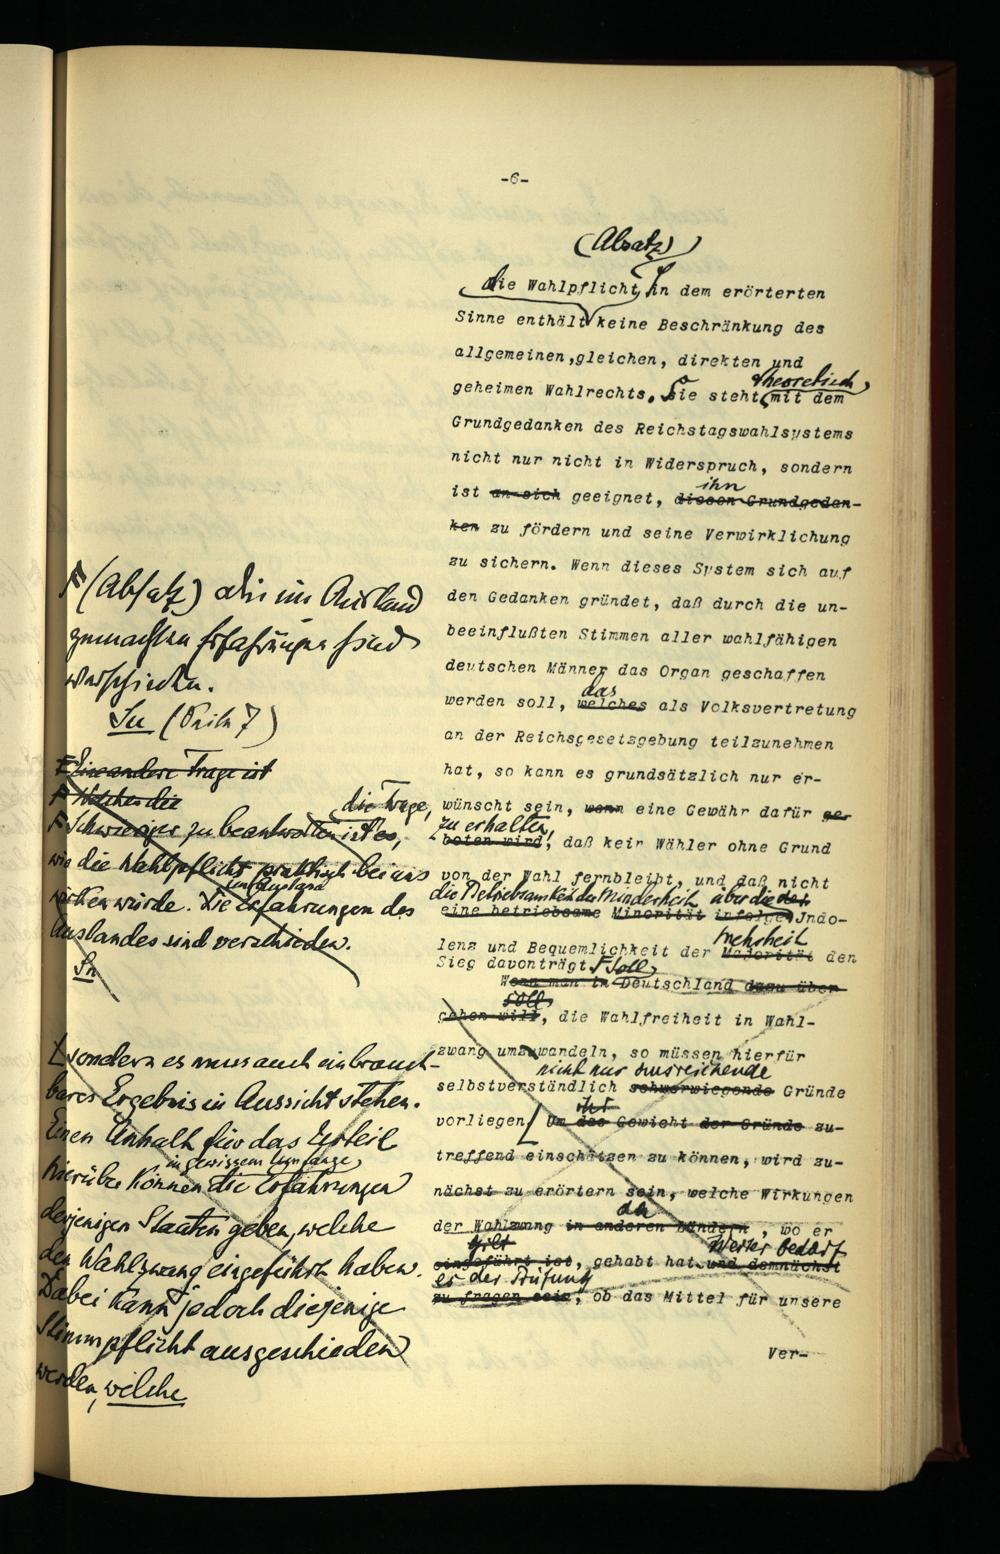 -6-
(Absatz)
die Wahlpflicht in dem erörterten
Sinne enthält keine Beschränkung des
allgemeinen, gleichen, direkten und
theoretisch
geheimen Wahlrechts. Sie steht mit dem
Grundgedanken des Reichstagswahlsystems
nicht nur nicht in Widerspruch, sondern
ihn
ist an sich geeignet, diesen Grundgedan-
ken zu fördern und seine Verwirklichung
zu sichern. Wenn dieses System sich auf
den Gedanken gründet, daß durch die un-
beeinflußten Stimmen aller wahlfähigen
deutschen Männer das Organ geschaffen
das
werden soll, welches als Volksvertretung
an der Reichsgesetzgebung teilzunehmen
hat, so kann es grundsätzlich nur er-
wünscht sein, wenn eine Gewähr dafür ge-
zu erhalten,
boten wird, daß kein Wähler ohne Grund
von der Wahl fernbleibt, und daß nicht
die Betriebsamkeit der Minderheit über die
eine betriebsame Minorität infolge Indo-
Mehrheit
lenz und Bequemlichkeit der Majorität den
Sieg davonträgt. Soll
Wenn man in Deutschland dazu über-
soll
gehen will, die Wahlfreiheit in Wahl-
zwang umzuwandeln, so müssen hierfür
nicht nur ausreichende
selbstverständlich schwerwiegende Gründe
vorliegen Um das Gewicht der Gründe zu-
treffend einschätzen zu können, wird zu-
nächst zu erörtern sein, welche Wirkungen
da
der Wahlzwang in anderen Ländern, wo er
gilt Weiter bedarf
eingeführt ist, gehabt hat und demnächst
es der Prüfung
zu fragen sein, ob das Mittel für unsere
Ver-
(Absatz) Die im Ausland
gemachten Erfahrungen sind
verschieden.
In (Seite 7)
Eine andere Frage ist
Welches die
die Frage,
Schwieriger zu beantworten ist es,
wie die Wahlpflicht praktisch bei uns
im Auslande
wirken würde. Die Erfahrungen des
Auslandes sind verschieden.
In
sondern es muss auch ein brauch-
bares Ergebnis in Aussicht stehen.
Einen Anhalt für das Urteil
in gewissem Umfange
hierüber können die Erfahrungen
derjenigen Staaten geben, welche
den Wahlzwang eingeführt haben.
Dabei kann jedoch diejenige
Stimmpflicht ausgeschieden
werden, welche